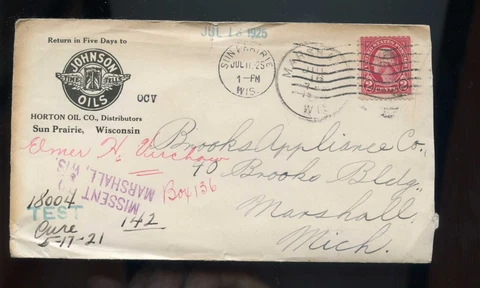 JUL 13 1925
Return in Five Days to
JOHNSON
TIME TELLS
OILS
OCV
HORTON OIL CO., Distributors
Sun Prairie, Wisconsin
SUN PRAIRIE
JUL 11 25
1-PM
WIS.
WIS
2 2
Elmer H.
Brooks Appliance Co.,
70 Brooks Bldg.,
Marshall,
Mich.
Box 136
MISSENT
TO
MARSHALL, WIS.
18004
TEST
142
Cure
5-17-21